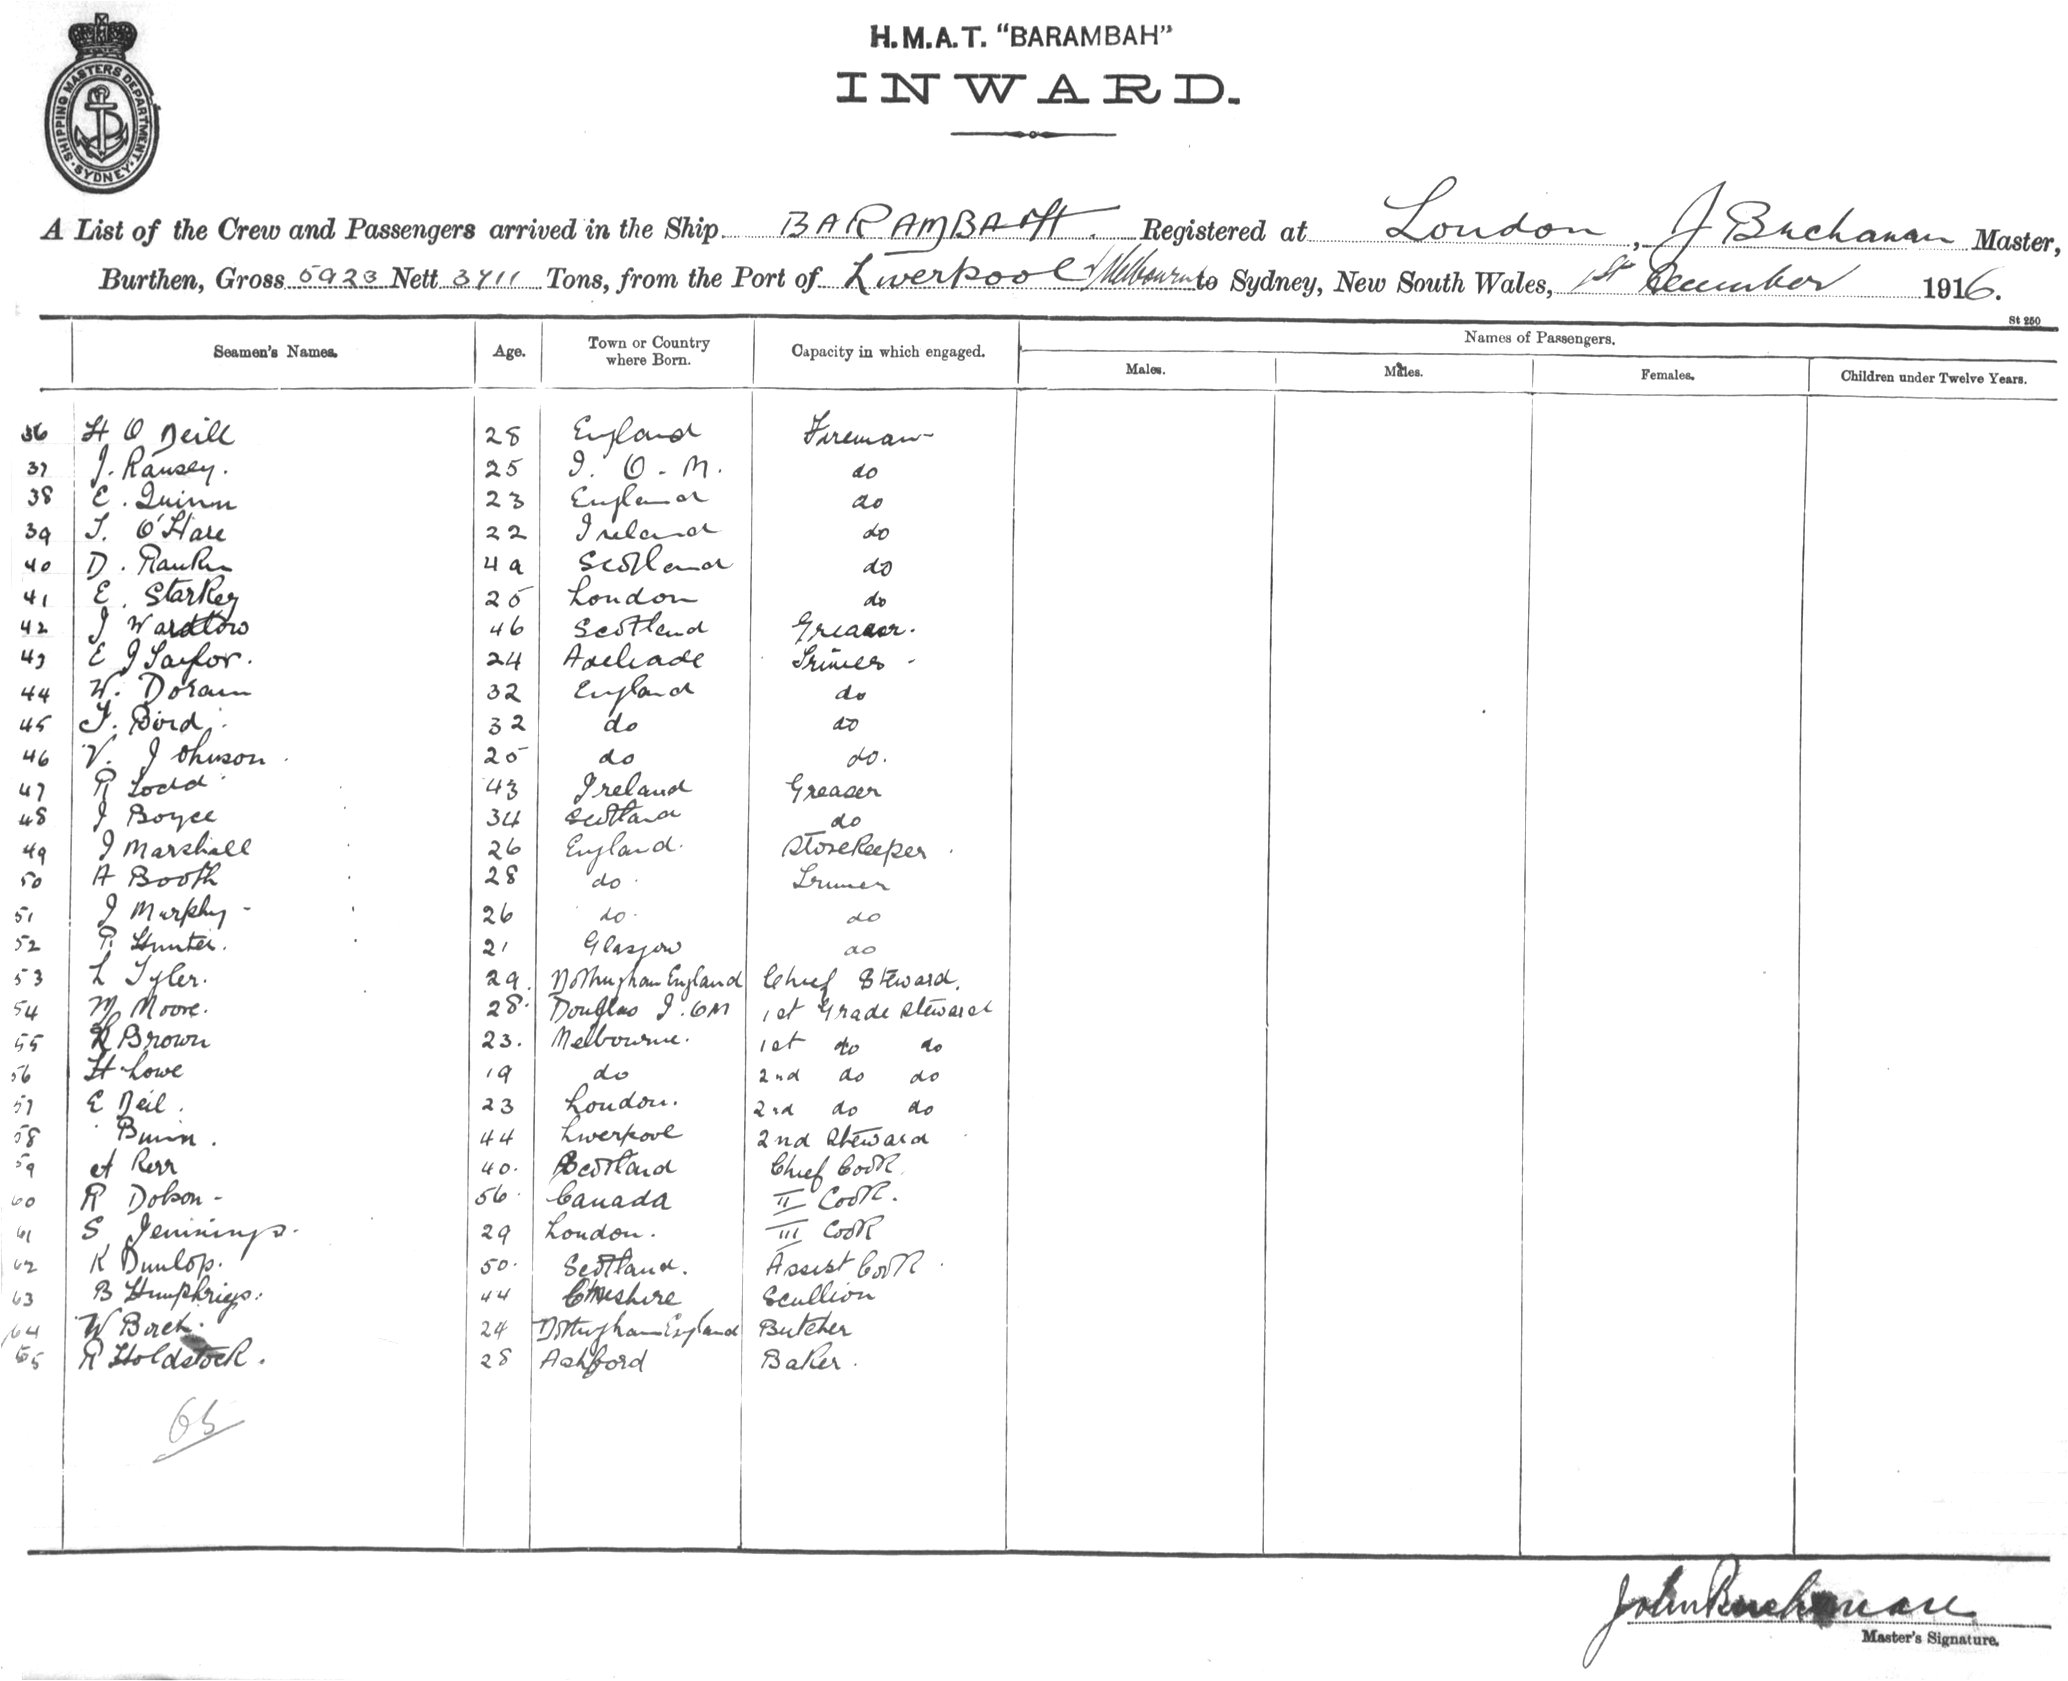 SHIPPING MASTERS DEPARTMENT. SYDNEY
H.M.A.T. "BARAMBAH"
INWARD.
A List of the Crew and Passengers arrived in the Ship BARAMBAH. Registered at London, J Buchanan Master,
Burthen, Gross 5923 Nett 3711 Tons, from the Port of Liverpool & Melbourne to Sydney, New South Wales, 1st December 1916.
St 250
Seamen's Names. Age. Town or Country where Born. Capacity in which engaged. Names of Passengers.
Males. Males. Females. Children under Twelve Years.
36 H O Neill 28 England Fireman
37 J. Ransey. 25 I. O. M. do
38 E. Quinn 23 England do
39 T. O'Hare 22 Ireland do
40 D. Rankin 49 Scotland do
41 E. Starkey 25 London do
42 J Wardlow 46 Scotland Greaser.
43 E J Taylor. 24 Adelaide Trimer
44 W. Doram 32 England do
45 F. Bird. 32 do do
46 V. Johnson 25 do do.
47 R Todd 43 Ireland Greaser
48 J Boyce 34 Scotland do
49 J Marshall 26 England. Storekeeper
50 A Booth 28 do Trimer
51 J Murphy 26 do. do
52 P. Hunter. 21 Glasgow do
53 L Tyler. 29. Nottingham England Chief Steward.
54 M Moore. 28. Douglas I.OM 1st Grade Steward
55 Brown 23. Melbourne. 1st do do
56 H Lowe 19 do 2nd do do
57 E Neil. 23 London. 2nd do do
58 44 Liverpool 2nd Steward
59 A Kerr 40. Scotland Chief Cook
60 R Dobson 56. Canada II Cook.
61 S Jennings. 29 London. III Cook
62 K Dunlop. 50. Scotland. Assist Cook
63 B Humphries. 44 Cheshire Scullion
64 W Birch. 24 Nottingham England Butcher
65 R Holdstock. 28 Ashford Baker.
65
John Buchanan
Master's Signature.